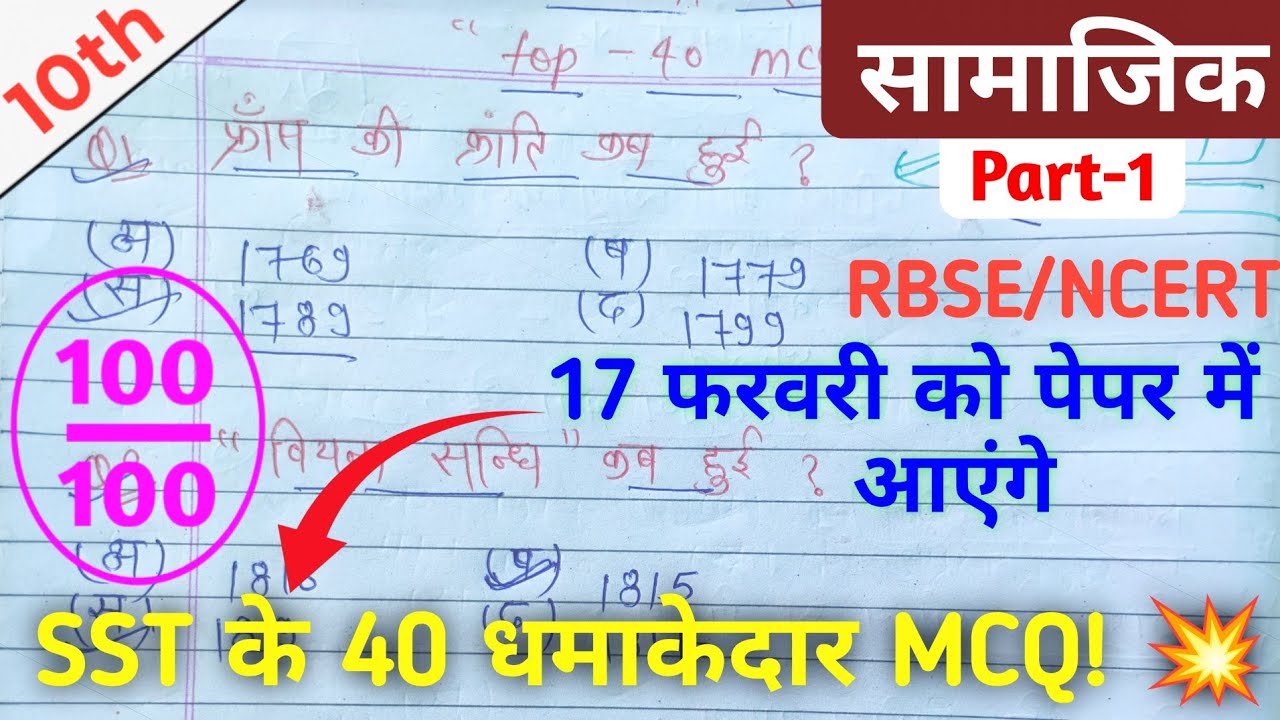 10th
सामाजिक
Part-1
“ top - 40 mc
Q1 फ्राँस की क्रांति कब हुई ?
(अ) 1769 (ब) 1779
(स) 1789 (द) 1799
RBSE/NCERT
100
100
17 फरवरी को पेपर में
आएंगे
“वियना सन्धि” कब हुई ?
(अ) (ब) 1815
(स) (द)
SST के 40 धमाकेदार MCQ!